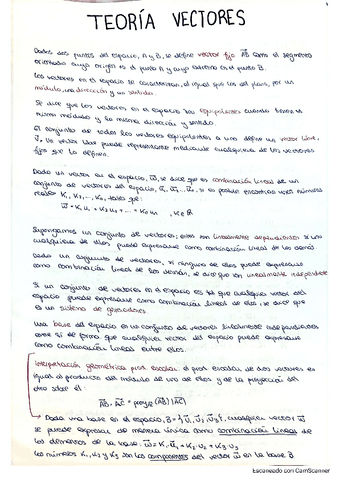 TEORÍA VECTORES
Dados dos puntos del espacio, A y B, se define vector fijo AB como el segmento
orientado cuyo origen es el punto A y cuyo extremo es el punto B.
Los vectores en el espacio se caracterizan, al igual que los del plano, por un
módulo, una dirección y un sentido.
Se dice que dos vectores en el espacio son equipolentes cuando tienen el
mismo módulo y la misma dirección y sentido.
El conjunto de todos los vectores equipolentes a uno define un vector libre,
v. Un vector libre puede representarse mediante cualquiera de los vectores
fijos que lo definen.
Dado un vector en el espacio, w, se dice que es combinación lineal de un
conjunto de vectores del espacio, u₁, u₂... uₙ, si es posible encontrar números
reales K₁, K₂, ..., Kₙ, tales que:
w = K₁u₁ + K₂u₂ + ... + Kₙuₙ
Supongamos un conjunto de vectores; estos son linealmente dependientes si uno
cualquiera de ellos puede expresarse como combinación lineal de los demás
Dado un conjunto de vectores, si ninguno de ellos puede expresarse
como combinación lineal de los demás, se dice que son linealmente independientes
Si un conjunto de vectores en el espacio es tal que cualquier vector del
espacio puede expresarse como combinación lineal de ellos, se dice que
es un sistema de generadores.
Una base del espacio es un conjunto de vectores linealmente independientes
entre sí de forma que cualquier vector del espacio puede expresarse
como combinación lineal entre ellos.
Interpretación geométrica prod. escalar: el prod. escalar de dos vectores es
igual al producto del módulo de uno de ellos y de la proyección del
otro sobre él:
AB · AC = proy |AC|
Dada una base en el espacio, B = {u₁, u₂, u₃}, cualquier vector w
se puede expresar de manera única como combinación lineal de
los elementos de la base. w = K₁·u₁ + K₂·u₂ + K₃·u₃
los números K₁, K₂ y K₃ son las componentes del vector w en la base B
Escaneado con CamScanner